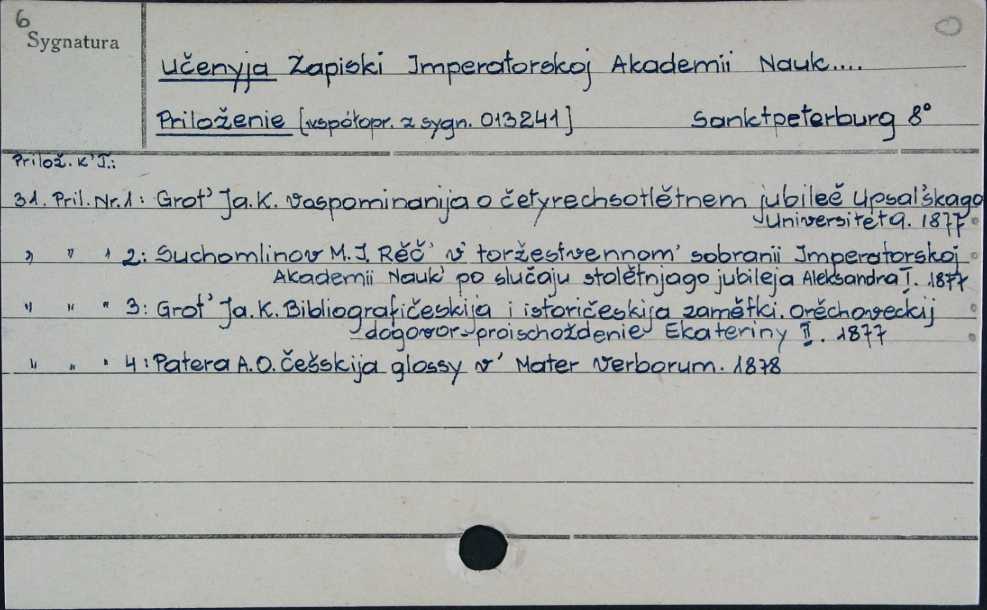 6
Sygnatura
Učenyja Zapiski Imperatorskoj Akademii Nauk....
Priloženie [współopr. z sygn. 013241] Sanktpeterburg 8°
Prilož. k' T.:
31. Pril. Nr. 1: Grot' Ja. K. Vospominanija o četyrechsotlětnem jubileě Upsal'skago
Universitéta. 1877
" " " 2: Suchomlinov M. I. Rěč' v' toržestvennom' sobranii Imperatorskoj
Akademii Nauk' po slučaju stolětnjago jubileja Aleksandra I. 1877
" " " 3: Grot' Ja. K. Bibliografičeskija i istoričeskija zamětki. Orěchoveckij
dogovor - proischoždenie Ekateriny II. 1877
" " " 4: Patera A. O. Češskija glossy v' Mater Verborum. 1878